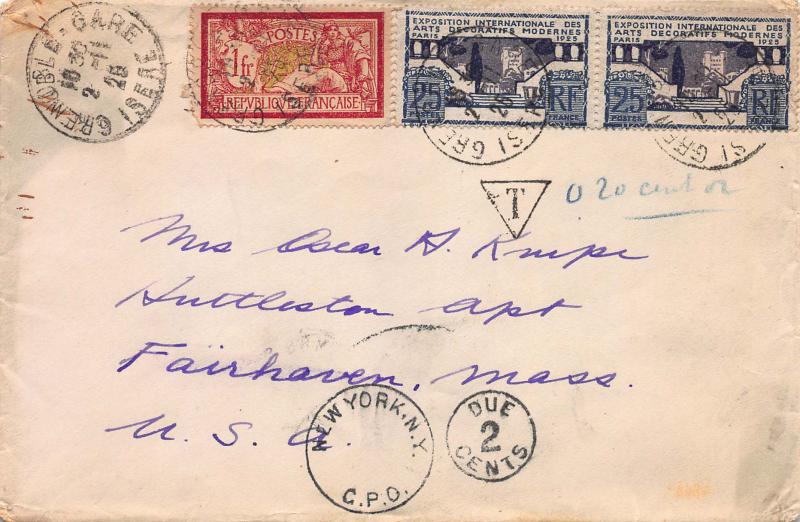 GRENOBLE-GARE
10 30
2-11
25
ISERE
POSTES
1fr
REPUBLIQUE FRANÇAISE
EXPOSITION INTERNATIONALE DES
ARTS DECORATIFS MODERNES
PARIS 1925
25 RF
POSTES FRANCE
EXPOSITION INTERNATIONALE DES
ARTS DECORATIFS MODERNES
PARIS 1925
25 RF
POSTES FRANCE
T
0 20 cent or
Mrs Oscar H. Knipe
Huttleston Apt
Fairhaven, Mass.
U. S. A.
NEW YORK, N.Y.
G.P.O.
DUE
2
CENTS